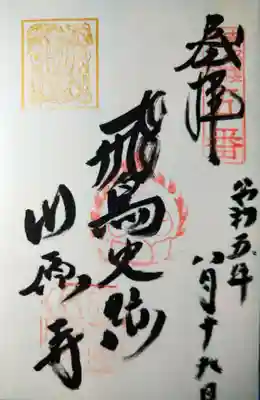 奉拝
令和五年
八月十九日
飛鳥史跡
川原寺